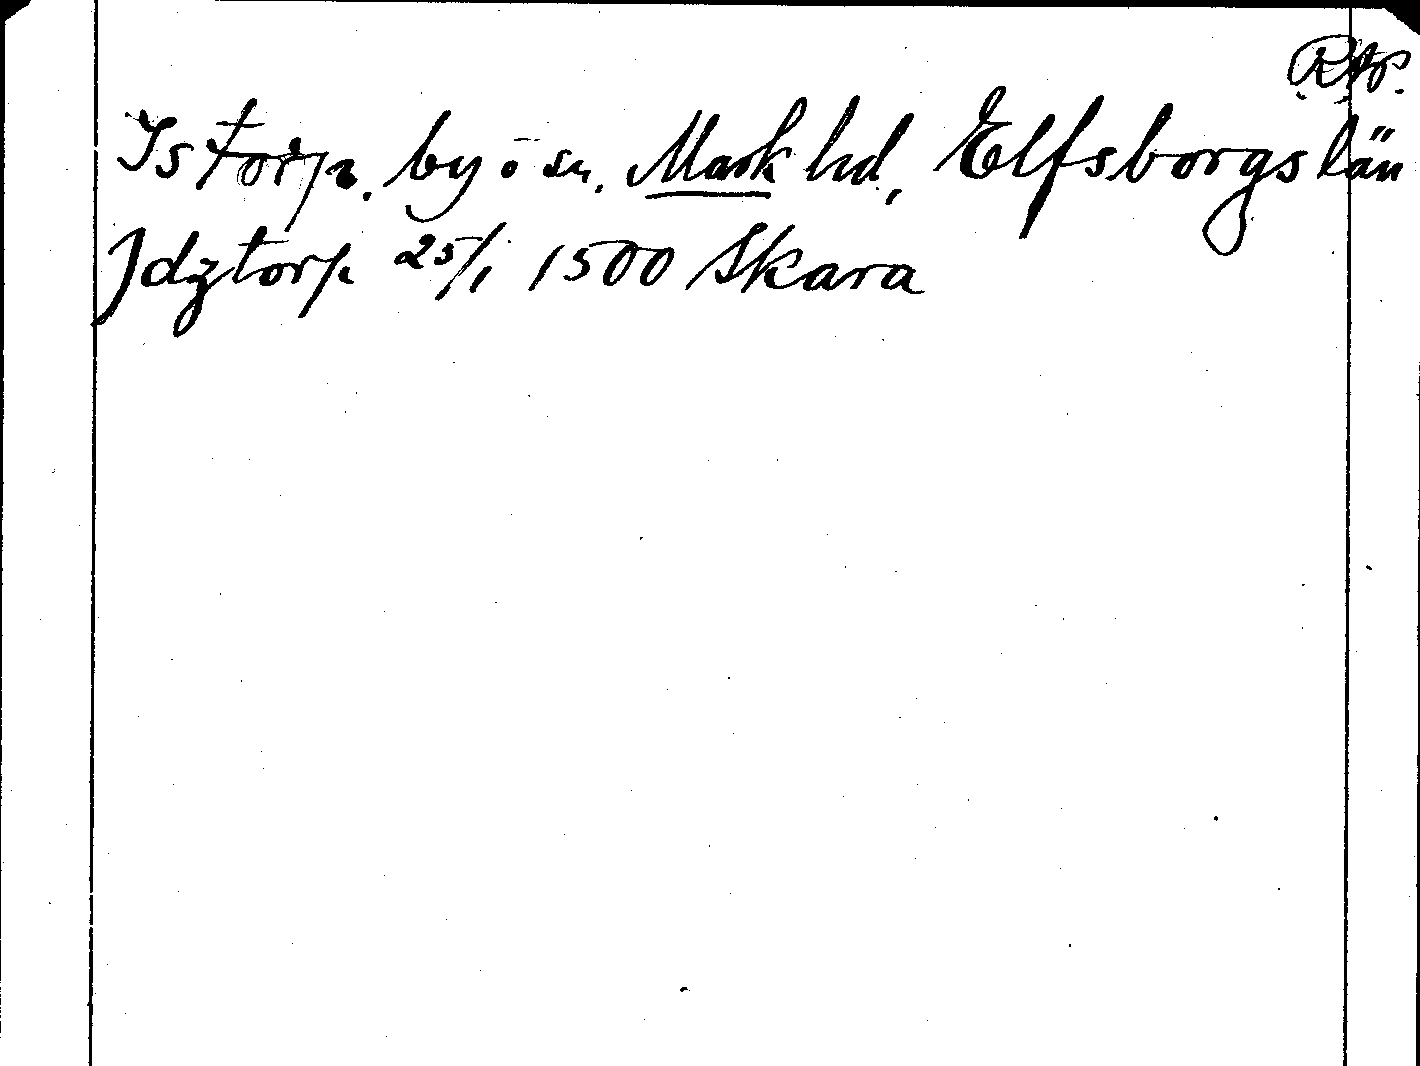 Istorp. by o sn. Mark hd, Elfsborgs län
Idztorp 25/1 1500 Skara